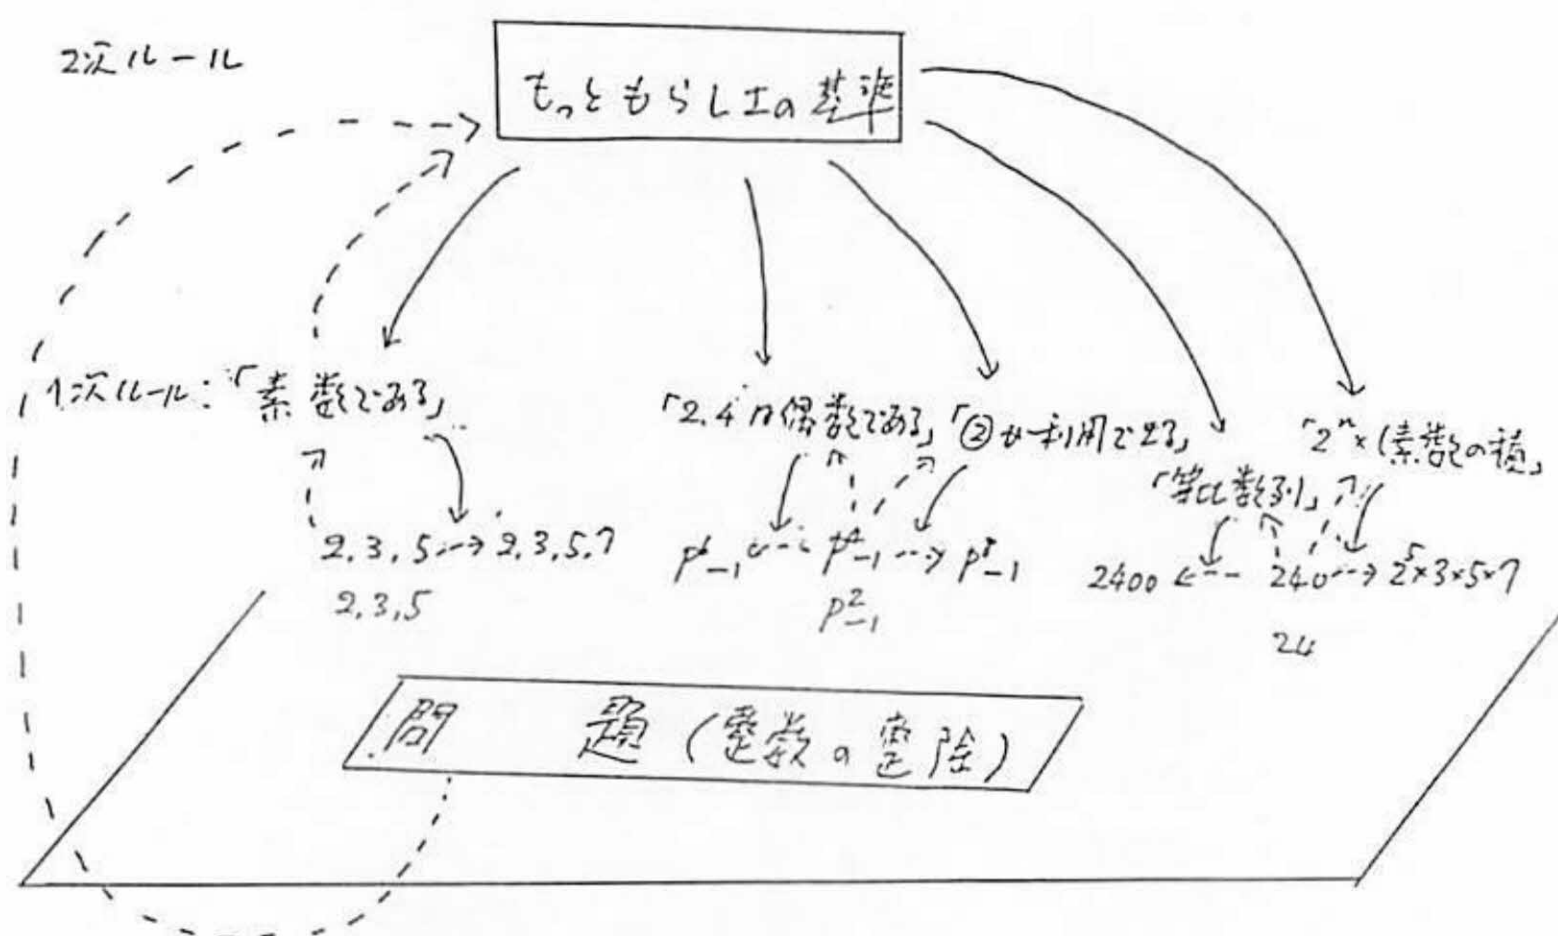 2次ルール
もっともらしエの基準
1次ルール:「素数である」
「2.4は偶数である」
「②が利用できる」
「2ⁿ×(素数の積」
「等比数列」
2.3.5→2.3.5.7
2.3.5
P⁶−1 ← P⁴−1 → P⁸−1
P²−1
2400 ← 240 → 2⁵×3×5×7
24
問 題(整数の整除)